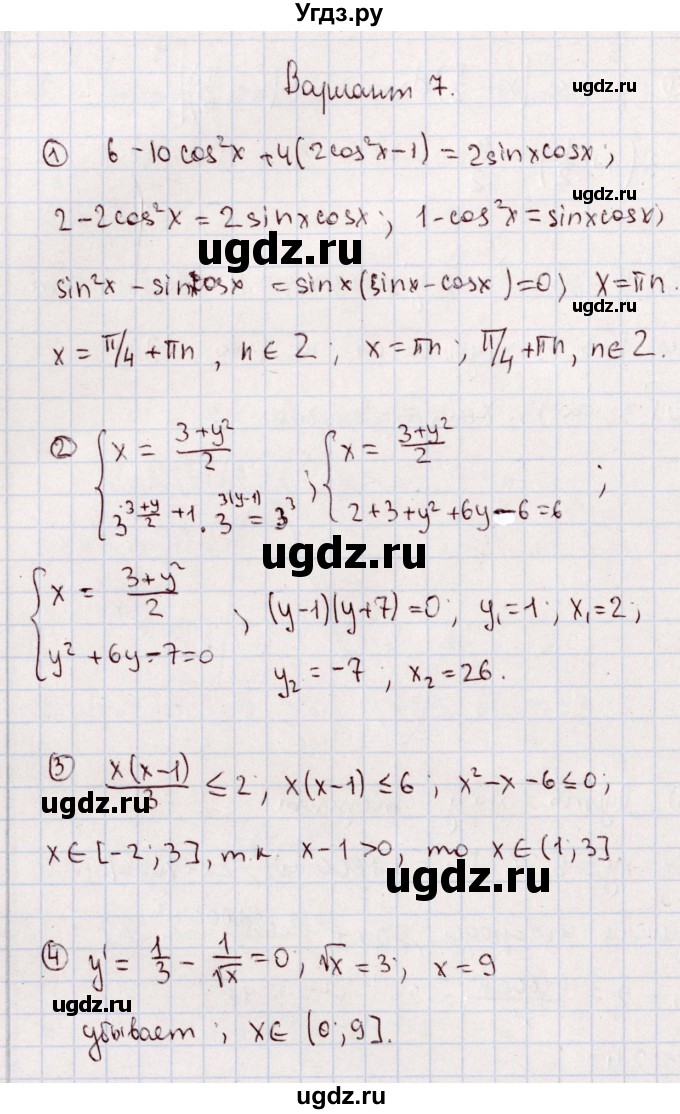 Угдз.ру
Вариант 7.
ugdz.ru
① 6 - 10cos²x + 4(2cos²x-1) = 2sinxcosx;
ugdz.ru
2 - 2cos²x = 2sinxcosx; 1-cos²x = sinxcosx;
ugdz.ru
sin²x - sinxcosx = sinx(sinx-cosx)=0; x=πn.
x = π/4 + πn, n∈Z; x=πn; π/4+πn, n∈Z.
② { x = (3+y²)/2 ; { x = (3+y²)/2 ;
3^((3+y)/2 + 1) · 3^(3(y-1)) = 3³ 2+3+y²+6y-6=6
ugdz.ru
ugdz.ru
{ x = (3+y²)/2 ; (y-1)(y+7)=0; y₁=1; x₁=2;
y²+6y-7=0 y₂=-7; x₂=26.
③ x(x-1)/3 ≤ 2; x(x-1) ≤ 6; x²-x-6≤0;
ugdz.ru
x∈[-2;3], т.к. x-1>0, то x∈(1;3].
ugdz.ru
④ y' = 1/3 - 1/√x = 0; √x = 3; x = 9
ugdz.ru
убывает; x∈[0;9].
ugdz.ru
ugdz.ru